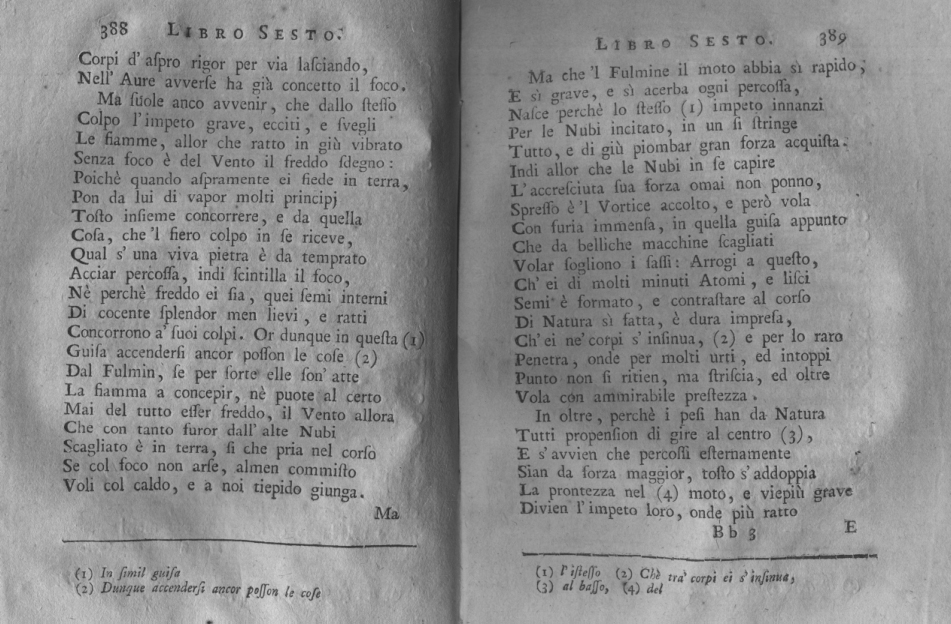 388 LIBRO SESTO.
Corpi d' aſpro rigor per via laſciando,
Nell' Aure avverſe ha già concetto il foco.
Ma ſuole anco avvenir, che dallo ſteſſo
Colpo l'impeto grave, ecciti, e ſvegli
Le fiamme, allor che ratto in giù vibrato
Senza foco è del Vento il freddo ſdegno:
Poichè quando aſpramente ei fiede in terra,
Pon da lui di vapor molti principj
Toſto inſieme concorrere, e da quella
Coſa, che 'l fiero colpo in ſe riceve,
Qual s' una viva pietra è da temprato
Acciar percoſſa, indi ſcintilla il foco,
Nè perchè freddo ei ſia, quei ſemi interni
Di cocente ſplendor men lievi, e ratti
Concorrono a' ſuoi colpi. Or dunque in queſta (1)
Guiſa accenderſi ancor poſſon le coſe (2)
Dal Fulmin, ſe per ſorte elle ſon' atte
La fiamma a concepir, nè puote al certo
Mai del tutto eſſer freddo, il Vento allora
Che con tanto furor dall' alte Nubi
Scagliato è in terra, ſi che pria nel corſo
Se col foco non arſe, almen commiſto
Voli col caldo, e a noi tiepido giunga.
Ma
(1) In ſimil guiſa
(2) Dunque accenderſi ancor poſſon le coſe
LIBRO SESTO. 389
Ma che 'l Fulmine il moto abbia sì rapido,
E sì grave, e sì acerba ogni percoſſa,
Naſce perchè lo ſteſſo (1) impeto innanzi
Per le Nubi incitato, in un ſi ſtringe
Tutto, e di giù piombar gran forza acquiſta.
Indi allor che le Nubi in ſe capire
L' accreſciuta ſua forza omai non ponno,
Spreſſo è 'l Vortice accolto, e però vola
Con furia immenſa, in quella guiſa appunto
Che da belliche macchine ſcagliati
Volar ſogliono i ſaſſi: Arrogi a queſto,
Ch' ei di molti minuti Atomi, e liſci
Semi è formato, e contraſtare al corſo
Di Natura sì fatta, è dura impreſa,
Ch' ei ne' corpi s' inſinua, (2) e per lo raro
Penetra, onde per molti urti, ed intoppi
Punto non ſi ritien, ma ſtriſcia, ed oltre
Vola con ammirabile preſtezza.
In oltre, perchè i peſi han da Natura
Tutti propenſion di gire al centro (3),
E s' avvien che percoſſi eſternamente
Sian da forza maggior, toſto s' addoppia
La prontezza nel (4) moto, e viepiù grave
Divien l' impeto loro, onde più ratto
B b 3 E
(1) l'iſteſſo (2) Chè tra' corpi ei s' inſinua,
(3) al baſſo, (4) del